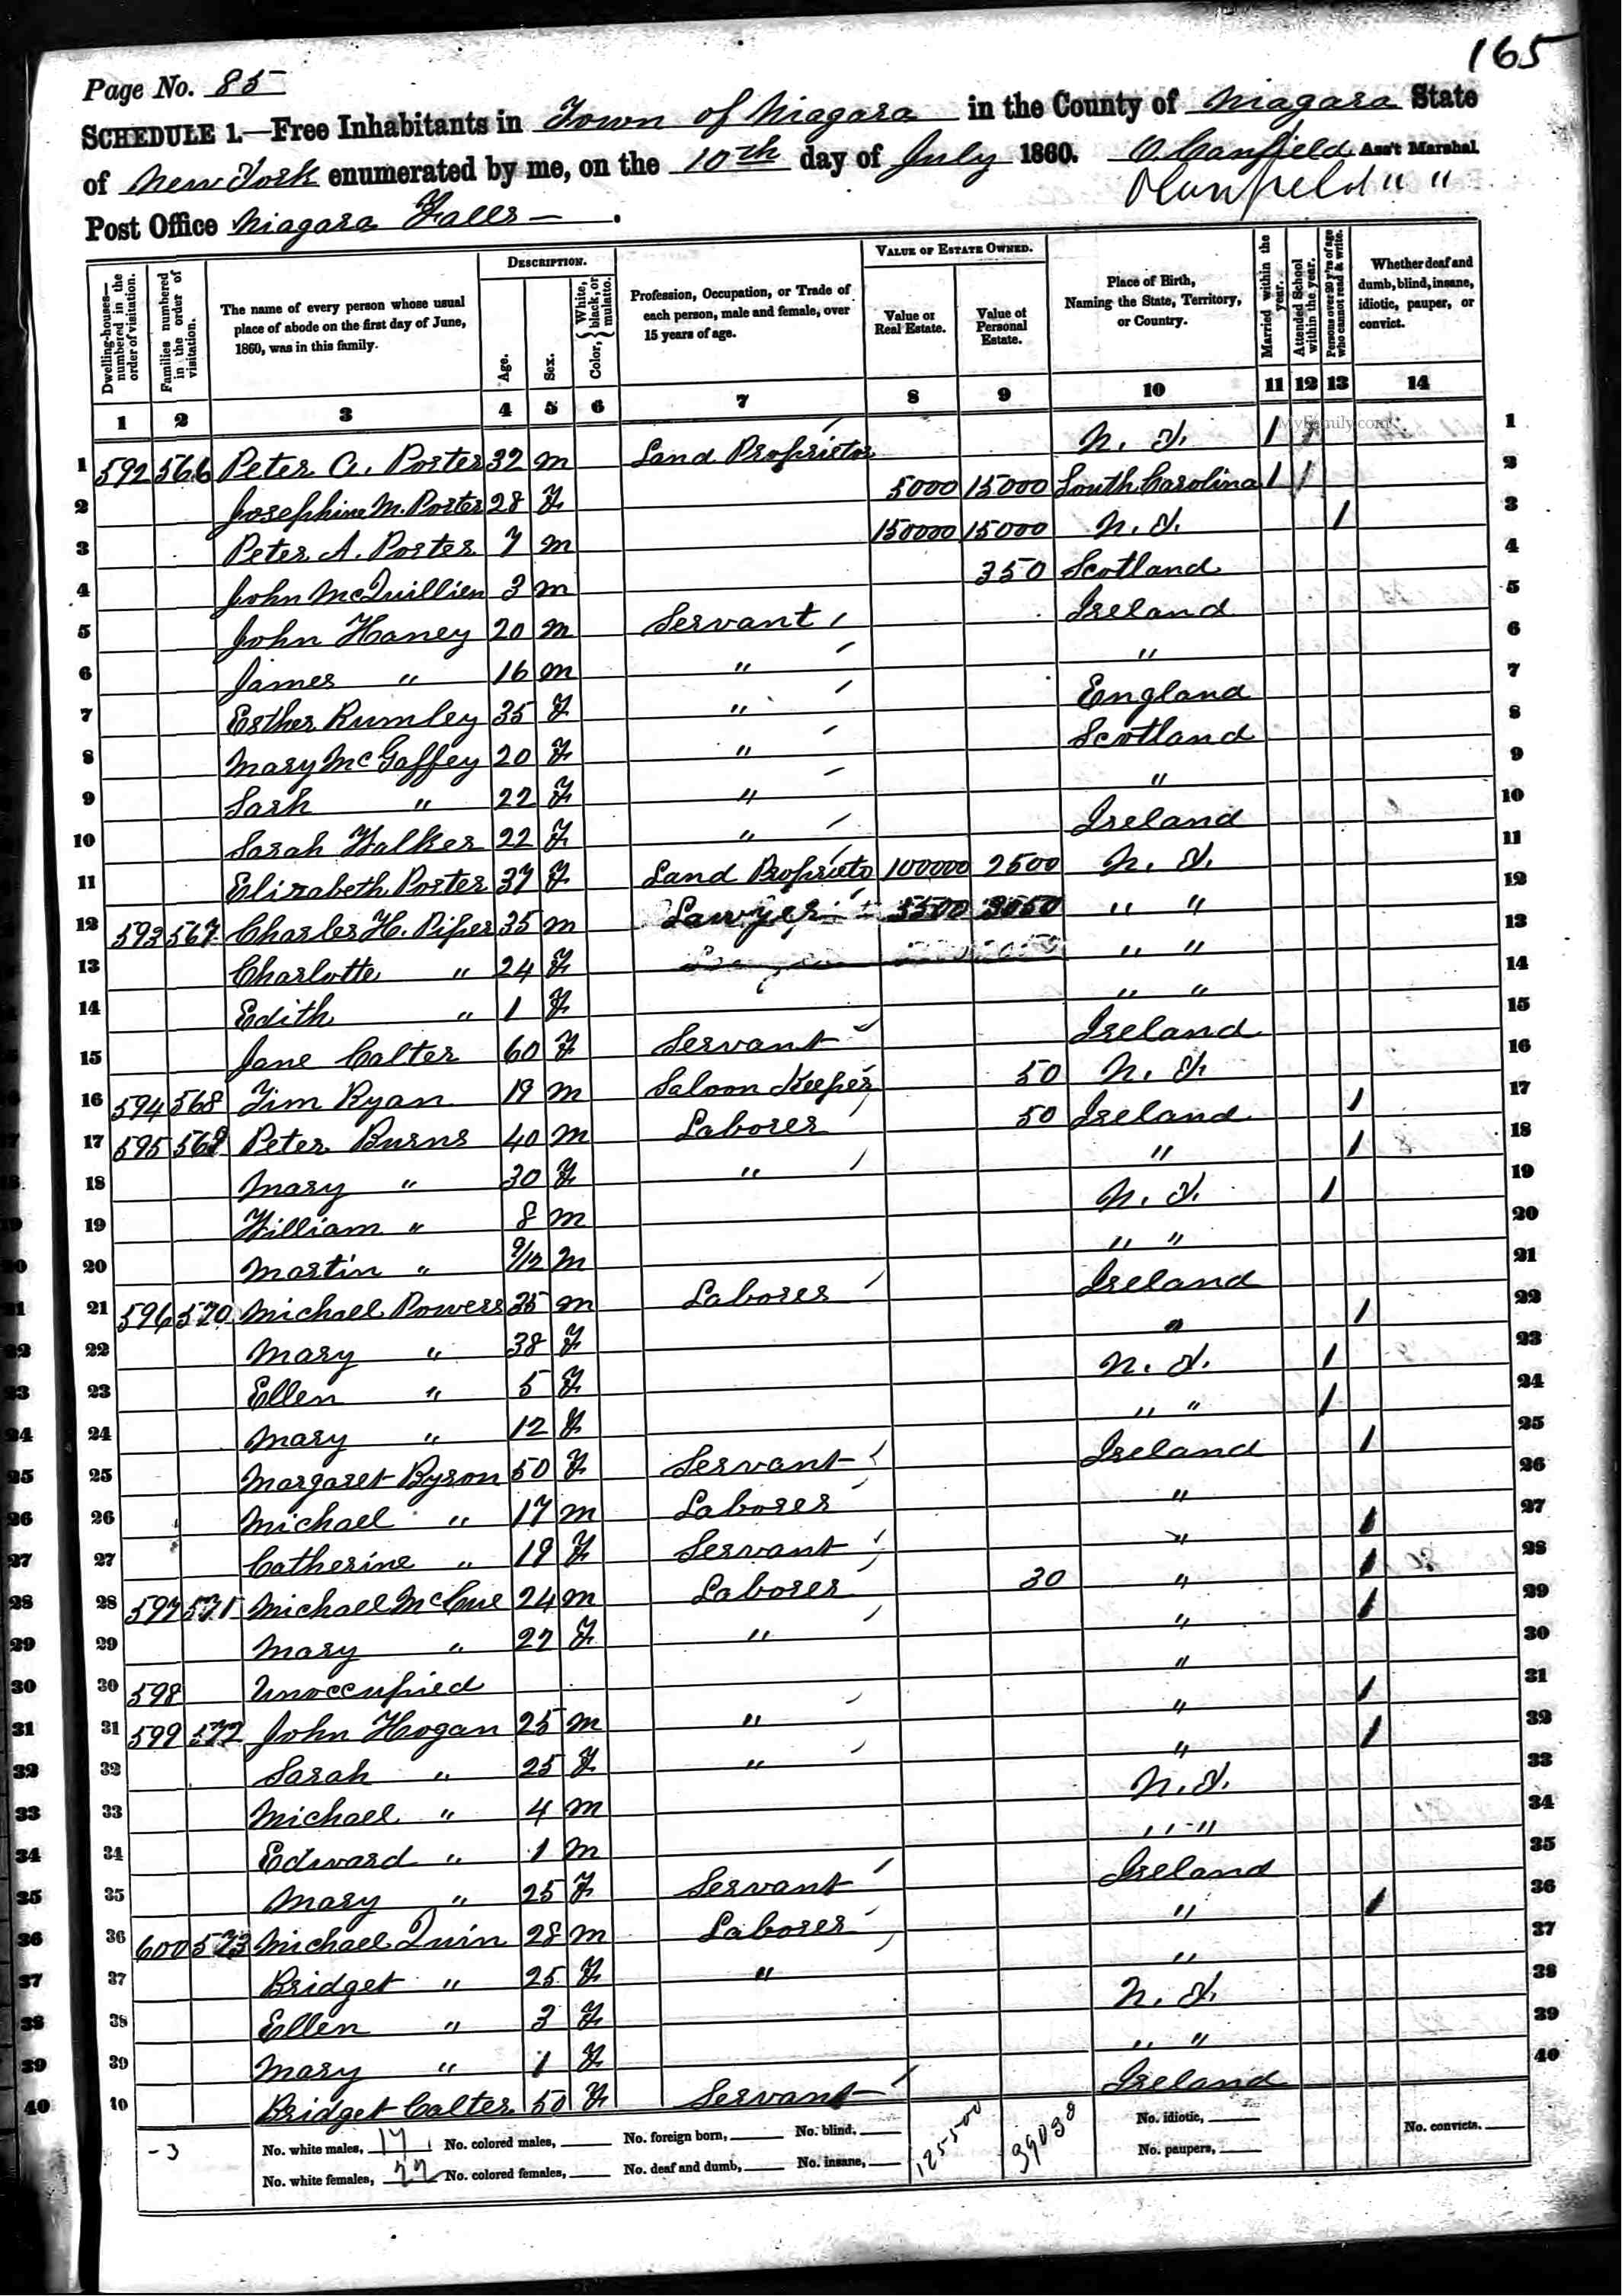 165
Page No. 85
SCHEDULE 1.—Free Inhabitants in Town of Niagara in the County of Niagara State
of New York enumerated by me, on the 10th day of July 1860. O. Canfield Ass't Marshal
Canfield " "
Post Office Niagara Falls .
DESCRIPTION. VALUE OF ESTATE OWNED.
Dwelling-houses—numbered in the order of visitation.
Families numbered in the order of visitation.
The name of every person whose usual place of abode on the first day of June, 1860, was in this family.
Age.
Sex.
Color, { White, black, or mulatto.
Profession, Occupation, or Trade of each person, male and female, over 15 years of age.
Value of Real Estate.
Value of Personal Estate.
Place of Birth, Naming the State, Territory, or Country.
Married within the year.
Attended School within the year.
Persons over 20 y'rs of age who cannot read & write.
Whether deaf and dumb, blind, insane, idiotic, pauper, or convict.
1 2 3 4 5 6 7 8 9 10 11 12 13 14
MyFamily.com
1 592 566 Peter A. Porter 32 m Land Proprietor N. Y. 1 1
2 Josephine M. Porter 28 F 5000 15000 South Carolina 1 2
3 Peter A. Porter 7 m 150000 15000 N. Y. 1 3
4 John McQuillien 3 m 350 Scotland 4
5 John Haney 20 m Servant Ireland 5
6 James " 16 m " " 6
7 Esther Rumley 35 F " England 7
8 Mary McGaffey 20 F " Scotland 8
9 Sarh " 22 F " " 9
10 Sarah Walker 22 F " Ireland 10
11 Elizabeth Porter 37 F Land Proprieto 100000 2500 N. Y. 11
12 593 567 Charles H. Piper 35 m Lawyer 5500 3050 " " 12
13 Charlotte " 24 F " " 13
14 Edith " 1 F " " 14
15 Jane Colter 60 F Servant Ireland 15
16 594 568 Tim Ryan 19 m Saloon Keeper 50 N. Y. 16
17 595 569 Peter Burns 40 m Laborer 50 Ireland 1 17
18 Mary " 30 F " " 1 18
19 William " 8 m N. Y. 1 19
20 Martin " 9/12 m " " 20
21 596 570 Michael Powers 35 m Laborer Ireland 21
22 Mary " 38 F " 1 22
23 Ellen " 5 F N. Y. 1 23
24 Mary " 12 F " " 1 24
25 Margaret Byron 50 F Servant Ireland 1 25
26 Michael " 17 m Laborer " 26
27 Catherine " 19 F Servant " 1 27
28 597 571 Michael McCue 24 m Laborer 30 " 1 28
29 Mary " 27 F " " 1 29
30 598 Unoccupied " 30
31 599 572 John Hogan 25 m " " 1 31
32 Sarah " 25 F " " 1 32
33 Michael " 4 m N. Y. 33
34 Edward " 1 m " " 34
35 Mary " 25 F Servant Ireland 35
36 600 573 Michael Quin 28 m Laborer " 1 36
37 Bridget " 25 F " " 37
38 Ellen " 3 F N. Y. 38
39 Mary " 1 F " " 39
40 Bridget Colter 50 F Servant Ireland 40
-3 No. white males, 17 No. colored males, No. foreign born, No. blind, 39030 No. idiotic, No. convicts.
No. white females, 22 No. colored females, No. deaf and dumb, No. insane, No. paupers,